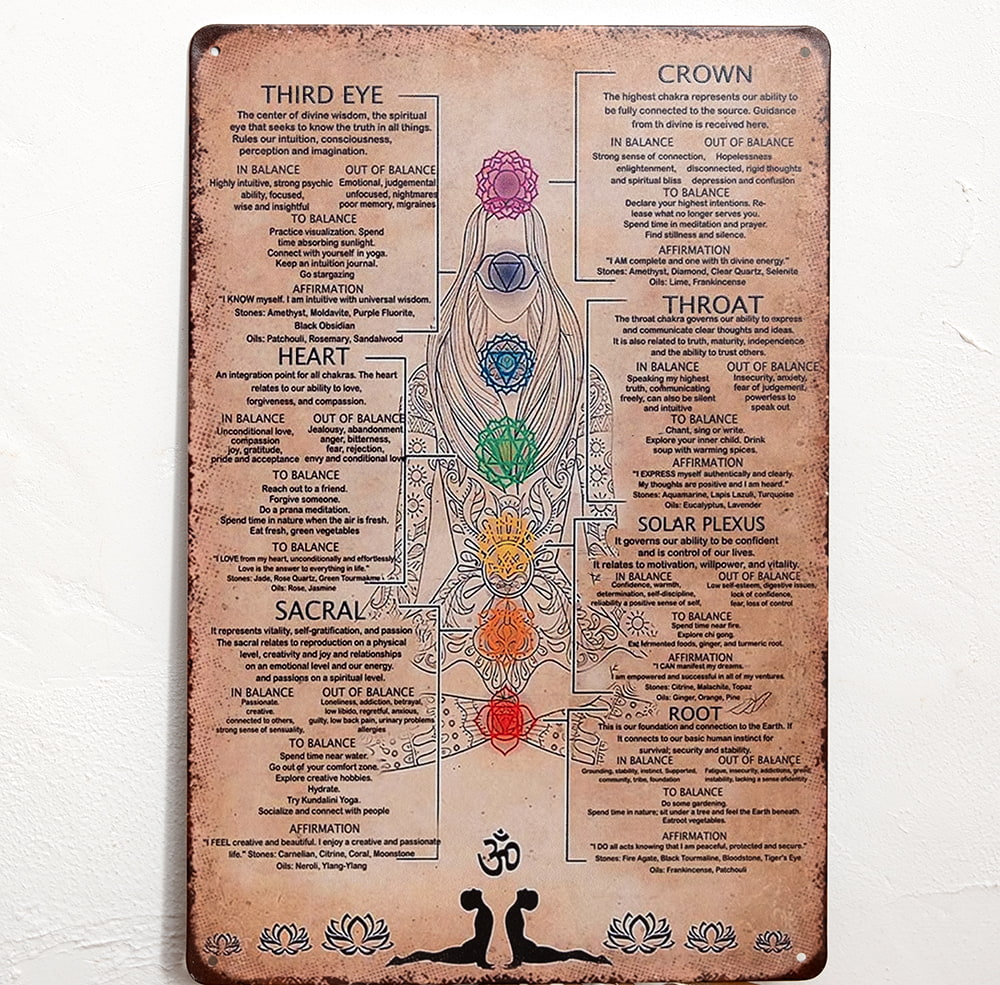 THIRD EYE
The center of divine wisdom, the spiritual
eye that seeks to know the truth in all things.
Rules our intuition, consciousness,
perception and imagination.
IN BALANCE
Highly intuitive, strong psychic
ability, focused,
wise and insightful
OUT OF BALANCE
Emotional, judgemental
unfocused, nightmares
poor memory, migraines
TO BALANCE
Practice visualization. Spend
time absorbing sunlight.
Connect with yourself in yoga.
Keep an intuition journal.
Go stargazing
AFFIRMATION
"I KNOW myself. I am intuitive with universal wisdom.
Stones: Amethyst, Moldavite, Purple Fluorite,
Black Obsidian
Oils: Patchouli, Rosemary, Sandalwood
HEART
An integration point for all chakras. The heart
relates to our ability to love,
forgiveness, and compassion.
IN BALANCE
Unconditional love,
compassion
joy, gratitude,
pride and acceptance
OUT OF BALANCE
Jealousy, abandonment
anger, bitterness,
fear, rejection,
envy and conditional love
TO BALANCE
Reach out to a friend.
Forgive someone.
Do a prana meditation.
Spend time in nature when the air is fresh.
Eat fresh, green vegetables
TO BALANCE
"I LOVE from my heart, unconditionally and effortlessly.
Love is the answer to everything in life."
Stones: Jade, Rose Quartz, Green Tourmaline
Oils: Rose, Jasmine
SACRAL
It represents vitality, self-gratification, and passion
The sacral relates to reproduction on a physical
level, creativity and joy and relationships
on an emotional level and our energy.
and passions on a spiritual level.
IN BALANCE
Passionate.
creative.
connected to others,
strong sense of sensuality,
OUT OF BALANCE
Loneliness, addiction, betrayal,
low libido, regretful, anxious,
guilty, low back pain, urinary problems
allergies
TO BALANCE
Spend time near water.
Go out of your comfort zone.
Explore creative hobbies.
Hydrate.
Try Kundalini Yoga.
Socialize and connect with people
AFFIRMATION
"I FEEL creative and beautiful. I enjoy a creative and passionate
life." Stones: Carnelian, Citrine, Coral, Moonstone
Oils: Neroli, Ylang-Ylang
CROWN
The highest chakra represents our ability to
be fully connected to the source. Guidance
from th divine is received here.
IN BALANCE
Strong sense of connection,
enlightenment,
and spiritual bliss
OUT OF BALANCE
Hopelessness
disconnected, rigid thoughts
depression and confusion
TO BALANCE
Declare your highest intentions. Re-
lease what no longer serves you.
Spend time in meditation and prayer.
Find stillness and silence.
AFFIRMATION
"I AM complete and one with th divine energy."
Stones: Amethyst, Diamond, Clear Quartz, Selenite
Oils: Lime, Frankincense
THROAT
The throat chakra governs our ability to express
and communicate clear thoughts and ideas.
It is also related to truth, maturity, independence
and the ability to trust others.
IN BALANCE
Speaking my highest
truth, communicating
freely, can also be silent
and intuitive
OUT OF BALANCE
Insecurity, anxiety,
fear of judgement,
powerless to
speak out
TO BALANCE
Chant, sing or write.
Explore your inner child. Drink
soup with warming spices.
AFFIRMATION
"I EXPRESS myself authentically and clearly.
My thoughts are positive and I am heard."
Stones: Aquamarine, Lapis Lazuli, Turquoise
Oils: Eucalyptus, Lavender
SOLAR PLEXUS
It governs our ability to be confident
and is control of our lives.
It relates to motivation, willpower, and, vitality.
IN BALANCE
Confidence, warmth,
determination, self-discipline,
reliability a positive sense of self,
OUT OF BALANCE
Low self-esteem, digestive issues,
lock of confidence,
fear, loss of control
TO BALANCE
Spend time near fire.
Explore chi gong.
Eat fermented foods, ginger, and turmeric root.
AFFIRMATION
"I CAN manifest my dreams.
I am empowered and successful in all of my ventures.
Stones: Citrine, Malachite, Topaz
Oils: Ginger, Orange, Pine
ROOT
This is our foundation and connection to the Earth. If
It connects to our basic human instinct for
survival; security and stability.
IN BALANCE
Grounding, stability, instinct. Supported,
community, tribe, foundation
OUT OF BALANCE
Fatigue, insecurity, addictions, greed
instability, lacking a sense ofidentity
TO BALANCE
Do some gardening.
Spend time in nature; sit under a tree and feel the Earth beneath.
Eatroot vegetables.
AFFIRMATION
"I DO all acts knowing that I am peaceful, protected and secure."
Stones: Fire Agate, Black Tourmaline, Bloodstone, Tiger's Eye
Oils: Frankincense, Patchouli
ॐ